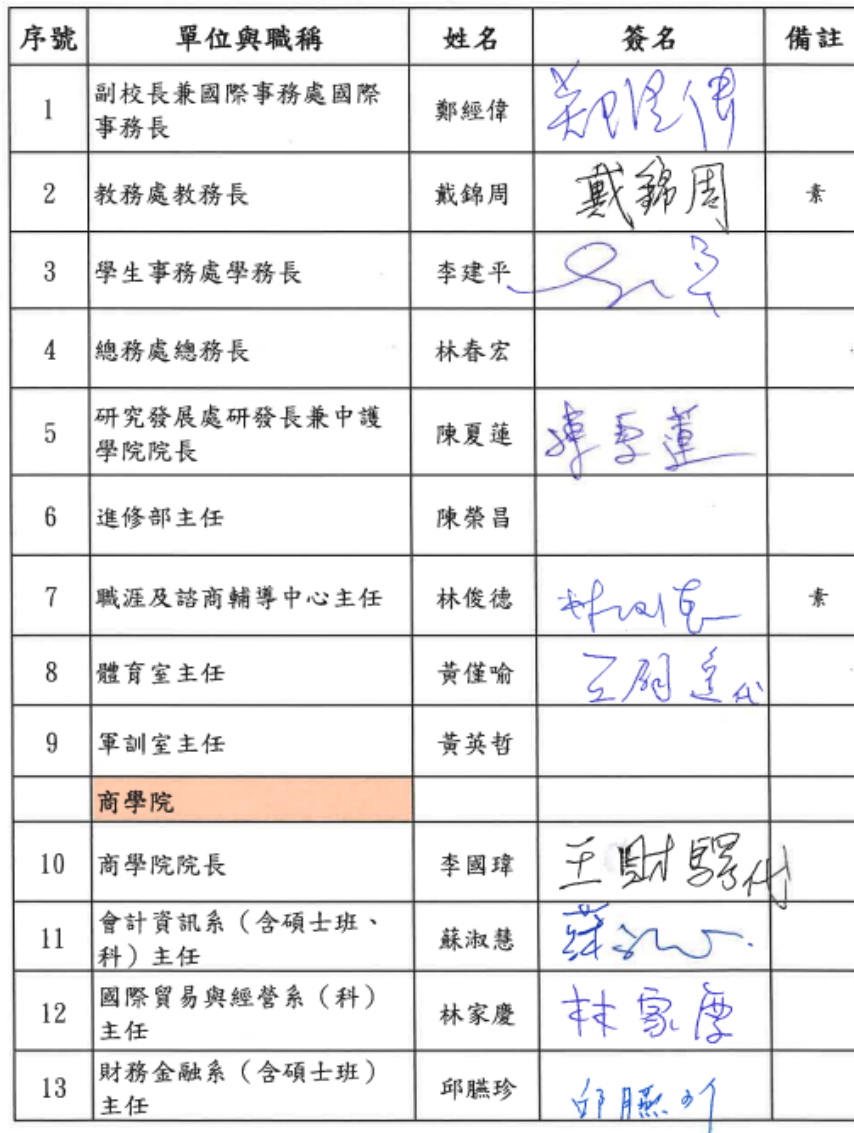 序號 單位與職稱 姓名 簽名 備註
1 副校長兼國際事務處國際 鄭經偉 鄭經偉
事務長
2 教務處教務長 戴錦周 戴錦周 素
3 學生事務處學務長 李建平
4 總務處總務長 林春宏
5 研究發展處研發長兼中護 陳夏蓮 陳夏蓮
學院院長
6 進修部主任 陳榮昌
7 職涯及諮商輔導中心主任 林俊德 林俊德 素
8 體育室主任 黃僅喻 代
9 軍訓室主任 黃英哲
商學院
10 商學院院長 李國瑋 王財驛代
11 會計資訊系（含碩士班、 蘇淑慧 蘇
科）主任
12 國際貿易與經營系（科） 林家慶 林家慶
主任
13 財務金融系（含碩士班） 邱臙珍 邱臙珍
主任